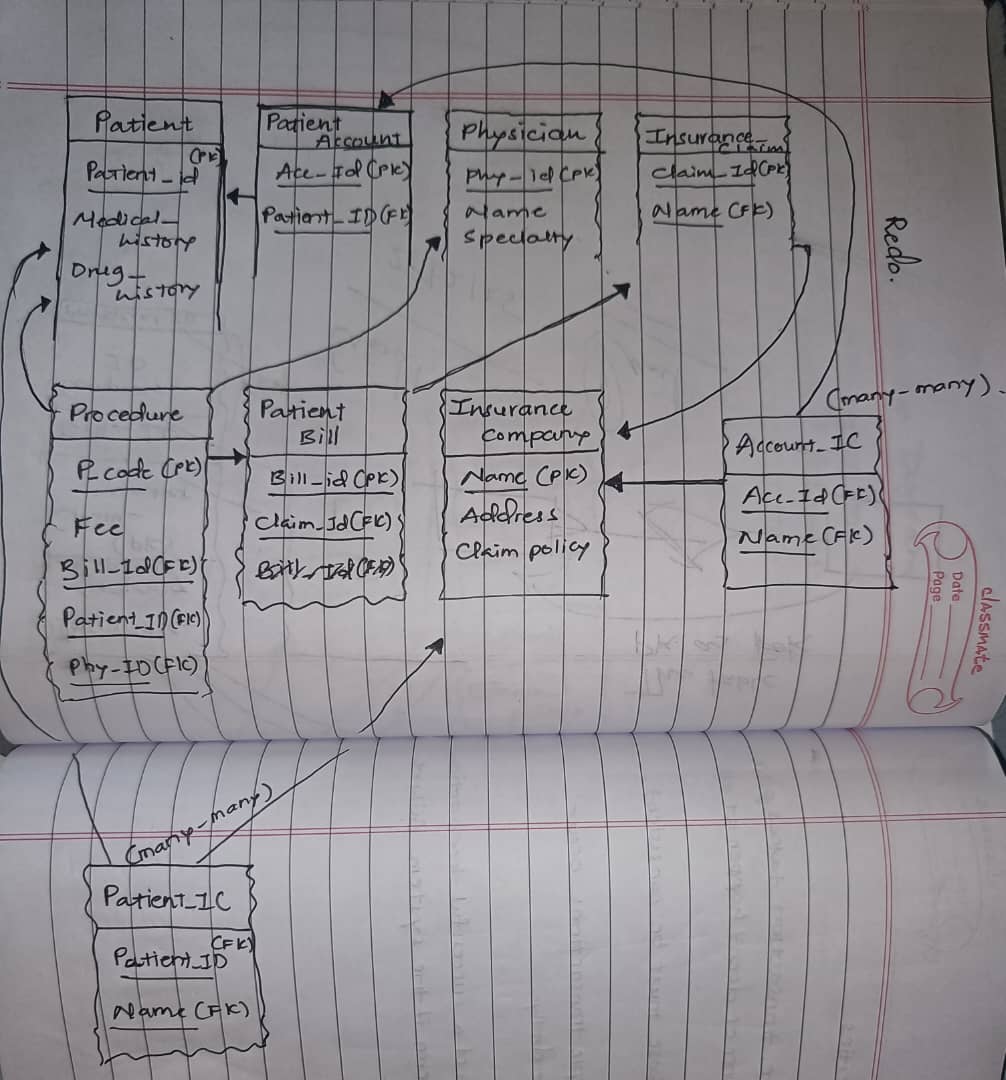 Patient
(PK)
Patient_id
Medical_
history
Drug_
history
Patient
Account
Acc_Id (PK)
Patient_ID (FK)
Physician
Phy_id (PK)
Name
Specialty
Insurance_
Claim
Claim_Id (PK)
Name (FK)
Redo.
Procedure
P_code (PK)
Fee
Bill_Id (FK)
Patient_ID (FK)
Phy_ID (FK)
Patient
Bill
Bill_id (PK)
Claim_Id (FK)
Insurance
Company
Name (PK)
Address
Claim policy
(many-many).
Account_IC
Acc_Id (FK)
Name (FK)
classmate
Date
Page
(many-many)
Patient_IC
(FK)
Patient_ID
Name (FK)